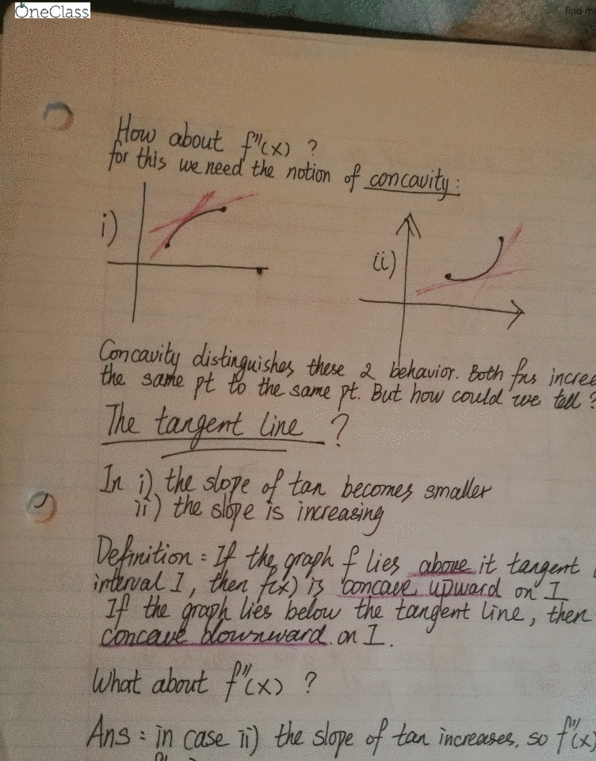 OneClass
find m
How about f"(x) ?
for this we need the notion of concavity:
i)
ii)
Concavity distinguishes these 2 behavior. Both fns increa
the same pt to the same pt. But how could we tell ?
The tangent line ?
In i) the slope of tan becomes smaller
ii) the slope is increasing
Definition: If the graph f lies above it tangent
interval I, then f(x) is concave upward on I
If the graph lies below the tangent line, then
concave downward on I.
What about f"(x) ?
Ans: in case ii) the slope of tan increases, so f"(x)